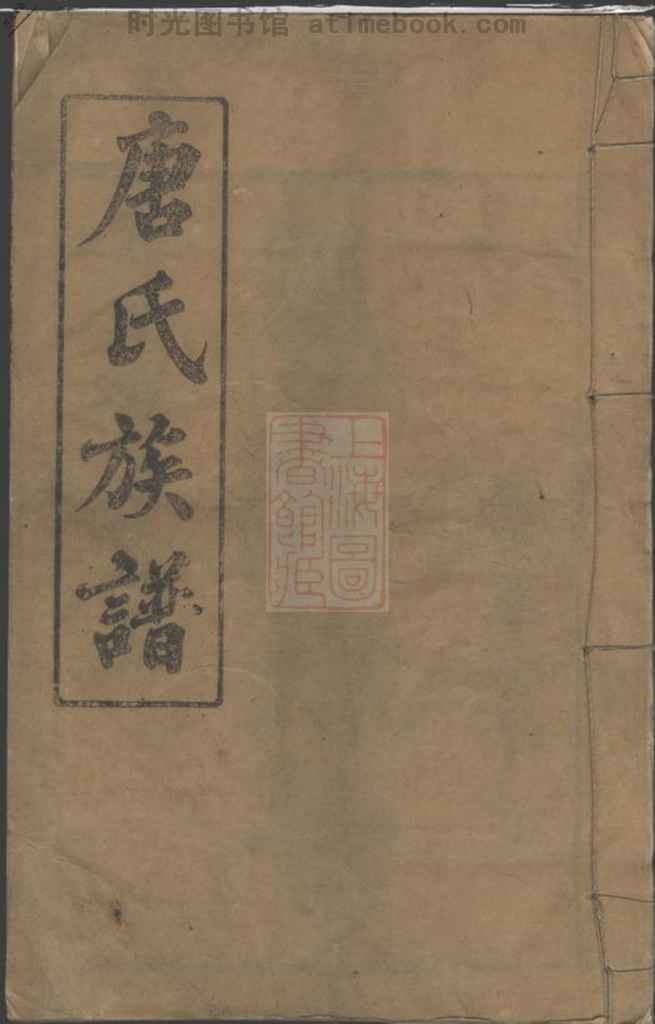 时光图书馆 atimebook.com
唐氏族譜
上海圖
書館藏